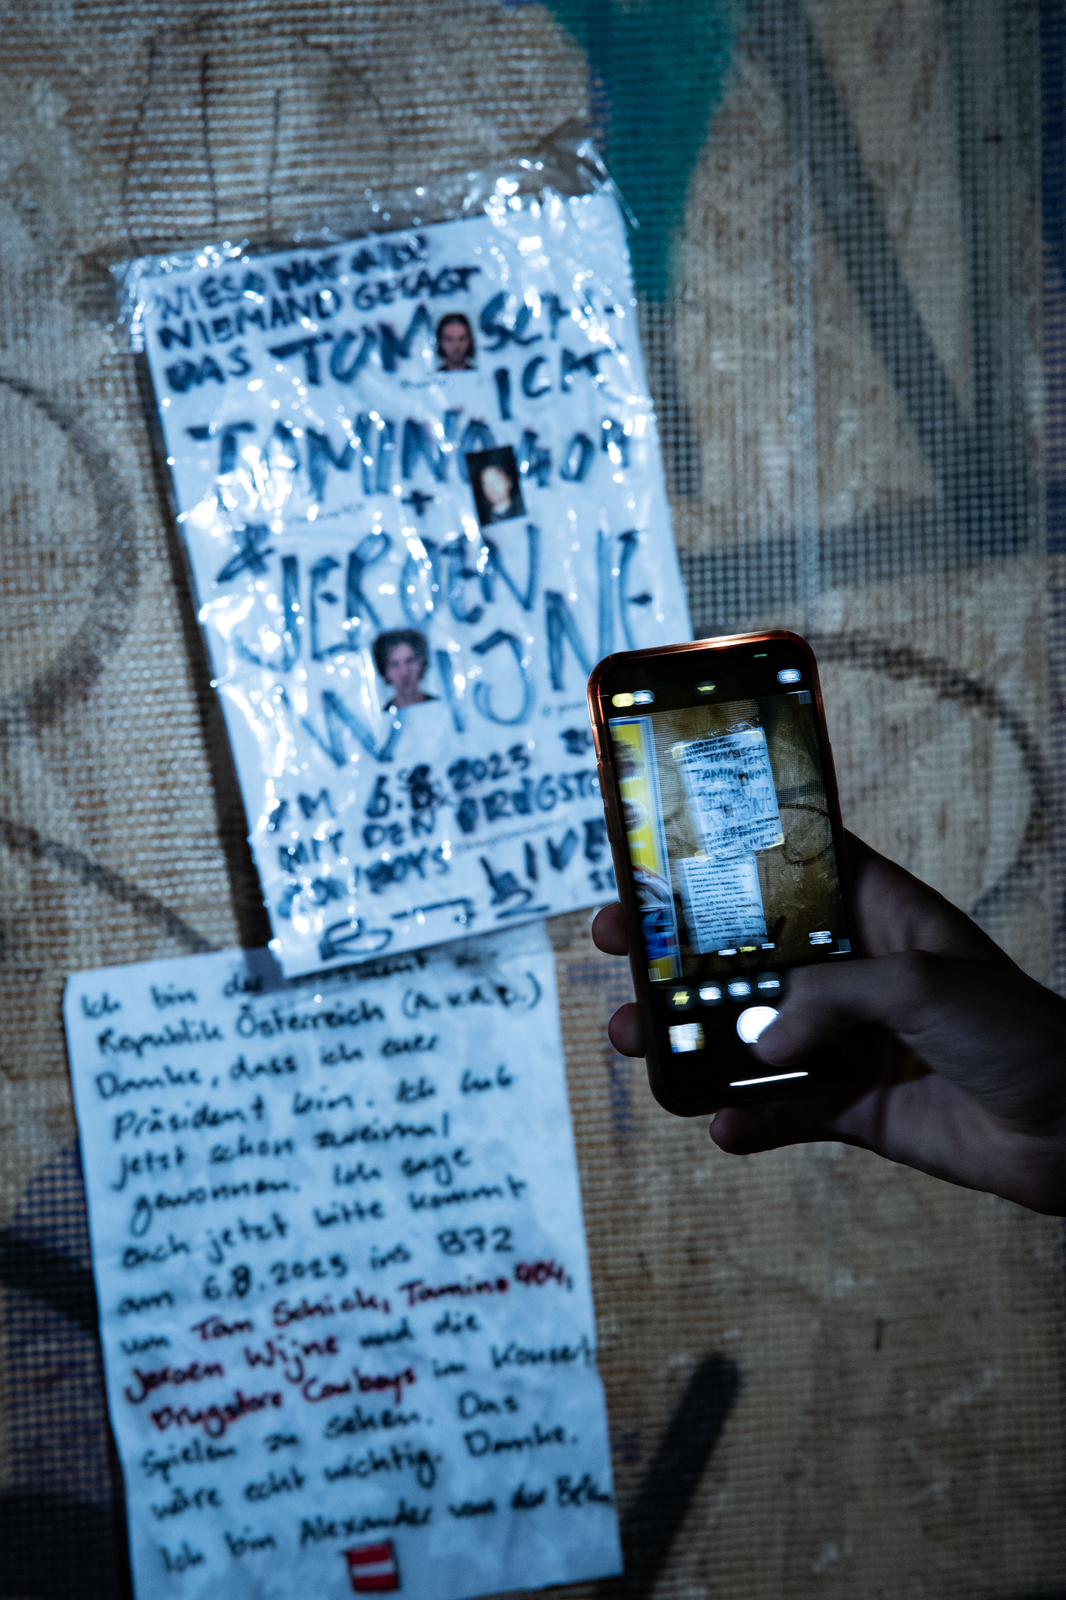 WIESO HAT MIR
NIEMAND GESAGT
DAS TOM SCHI-
ICK
TAMINO 404
+
& JEROEN
WIJNE
AM 6.8.2025
MIT DEN DRUGSTO
COWBOYS LIVE
Ich bin der
Republik Österreich (A.v.d.B.)
Danke, dass ich euer
Präsident bin. Ich hab
jetzt schon zweimal
gewonnen. Ich sage
euch jetzt bitte kommt
am 6.8.2025 ins B72
um Tom Schick, Tamino 404,
Jeroen Wijne und die
Drugstore Cowboys im Konzert
spielen zu sehen. Das
wäre echt wichtig. Danke.
Ich bin Alexander van der Bellen